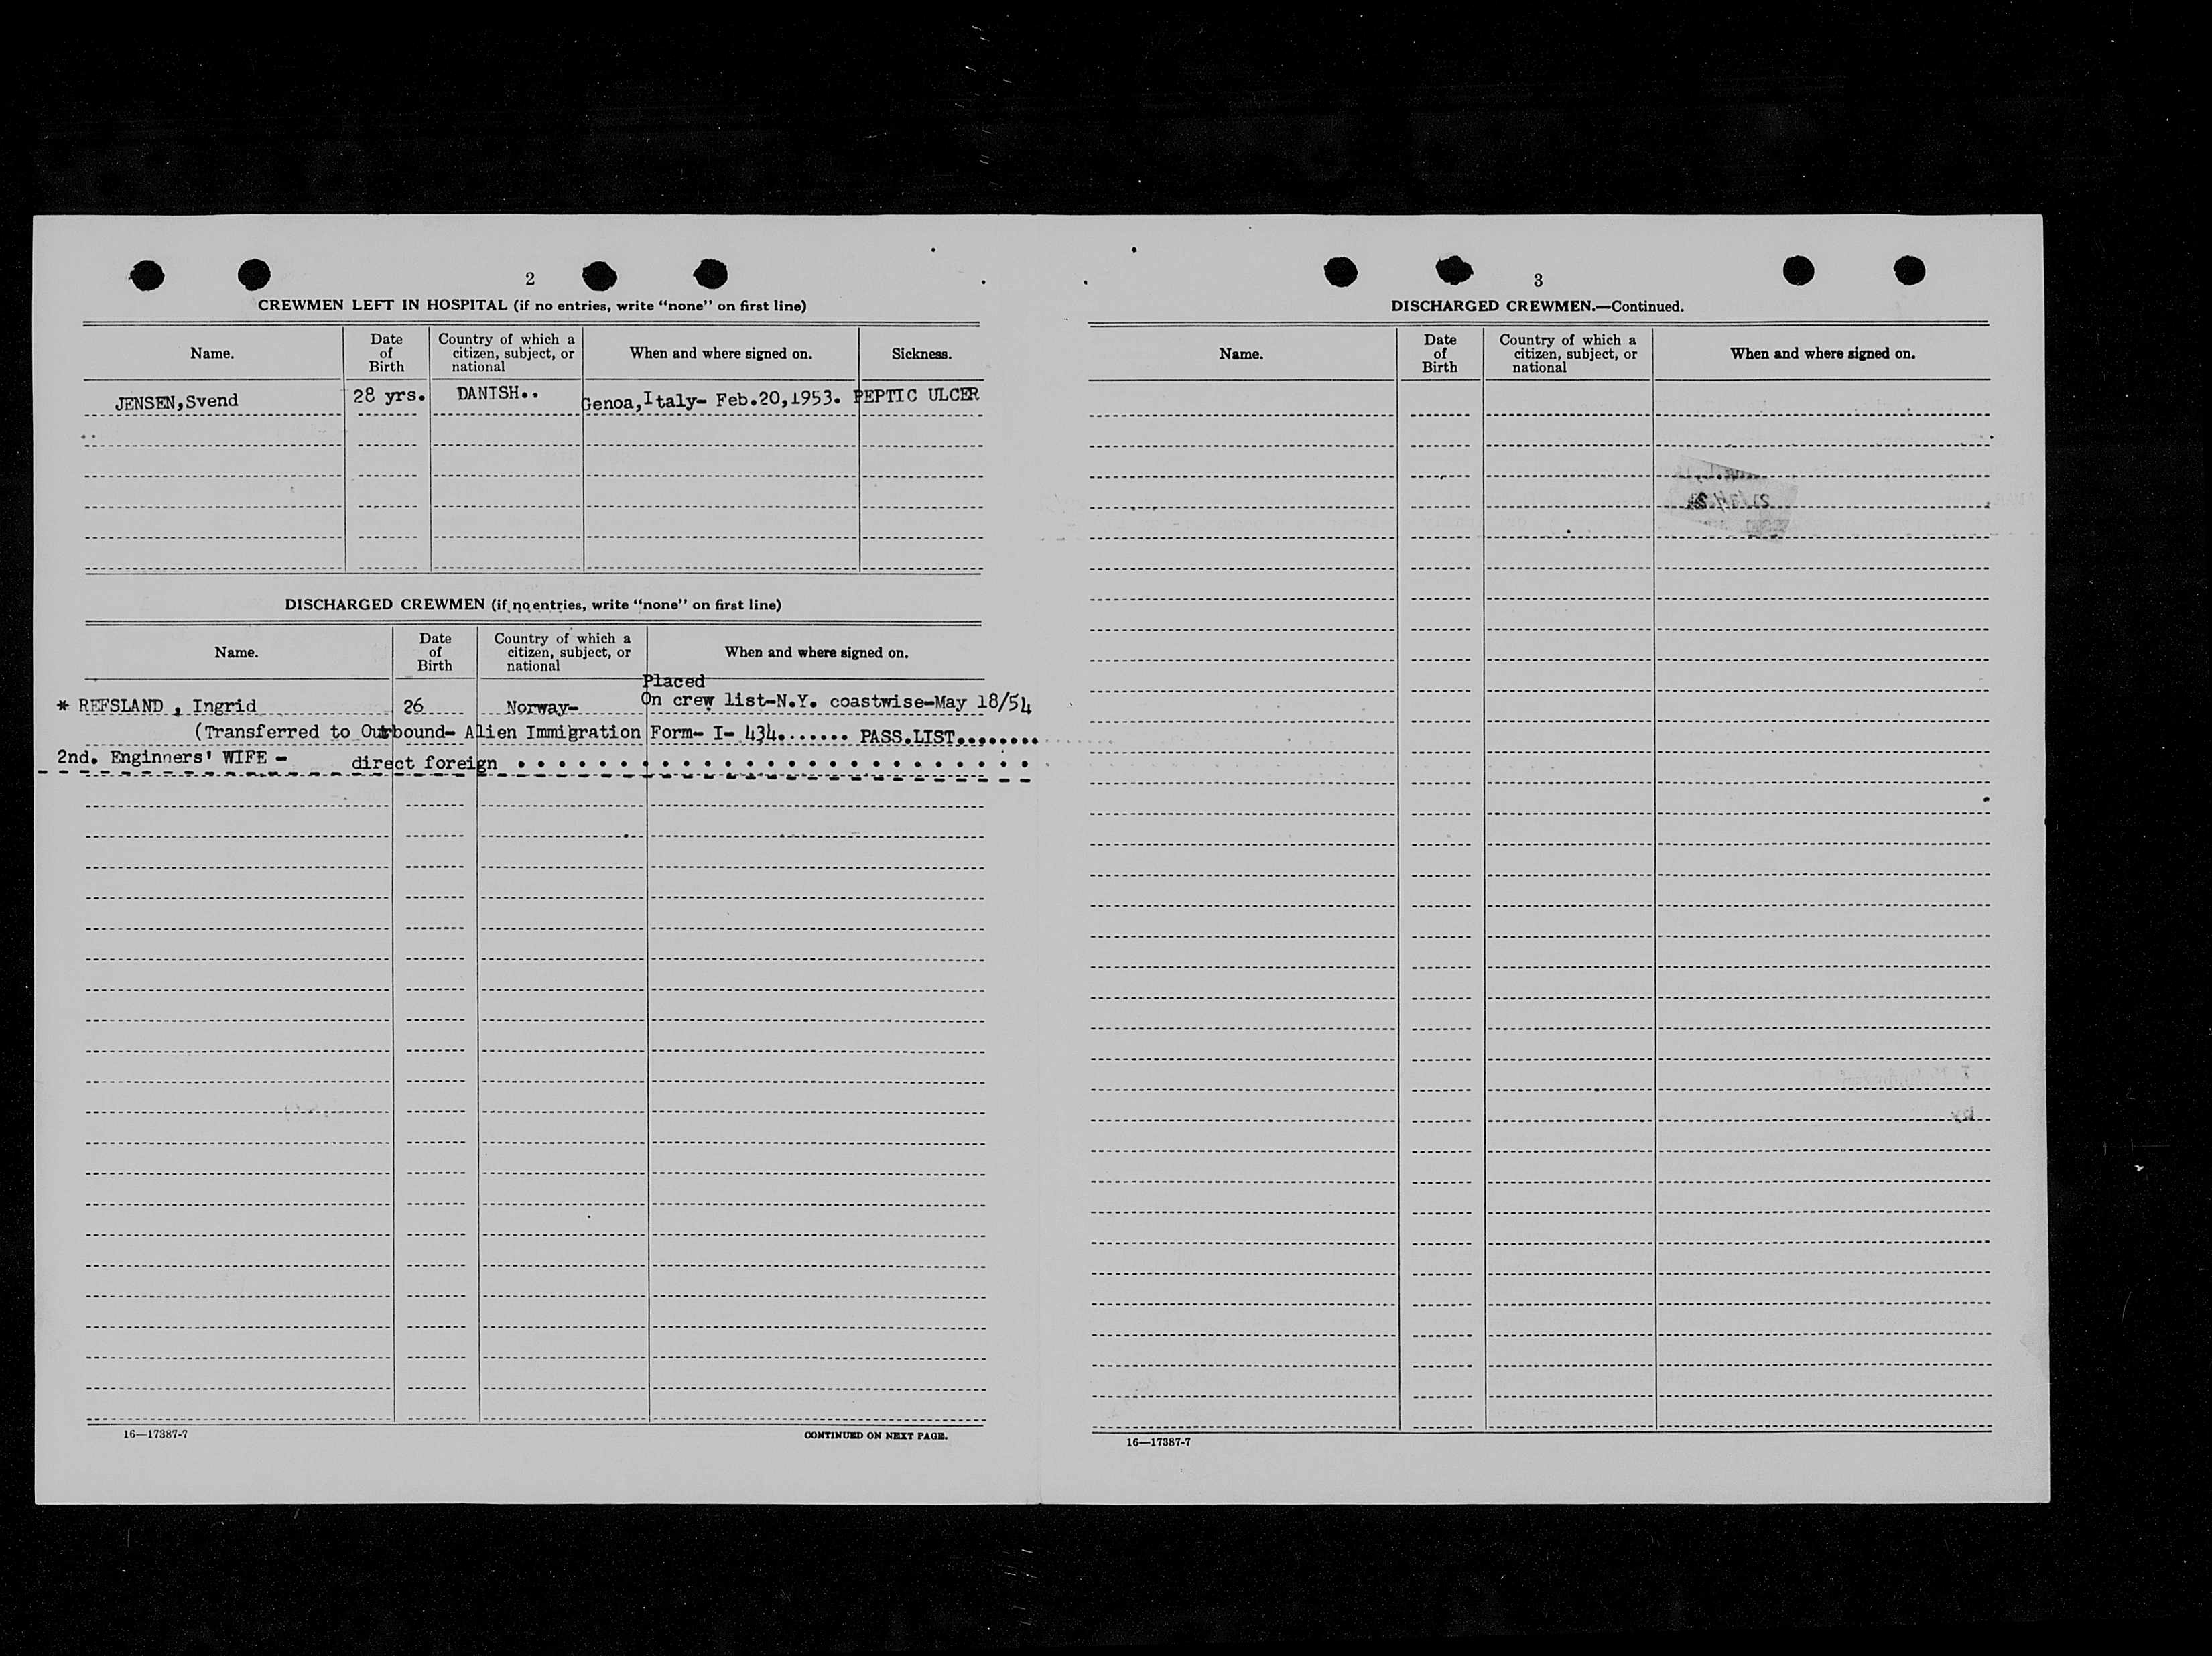 2
CREWMEN LEFT IN HOSPITAL (if no entries, write "none" on first line)
Name. Date of Birth Country of which a citizen, subject, or national When and where signed on. Sickness.
JENSEN,Svend 28 yrs. DANISH.. Genoa,Italy- Feb.20,1953. PEPTIC ULCER
DISCHARGED CREWMEN (if no entries, write "none" on first line)
Name. Date of Birth Country of which a citizen, subject, or national When and where signed on.
Placed
* REFSLAND , Ingrid 26 Norway- On crew list-N.Y. coastwise-May 18/54
(Transferred to Outbound- Alien Immigration Form- I- 434....... PASS.LIST........
2nd. Enginners' WIFE - direct foreign . . . . . . . . . . . . . . . . . . . . . . . .
16—17387-7 CONTINUED ON NEXT PAGE.
3
DISCHARGED CREWMEN.—Continued.
Name. Date of Birth Country of which a citizen, subject, or national When and where signed on.
by
16—17387-7